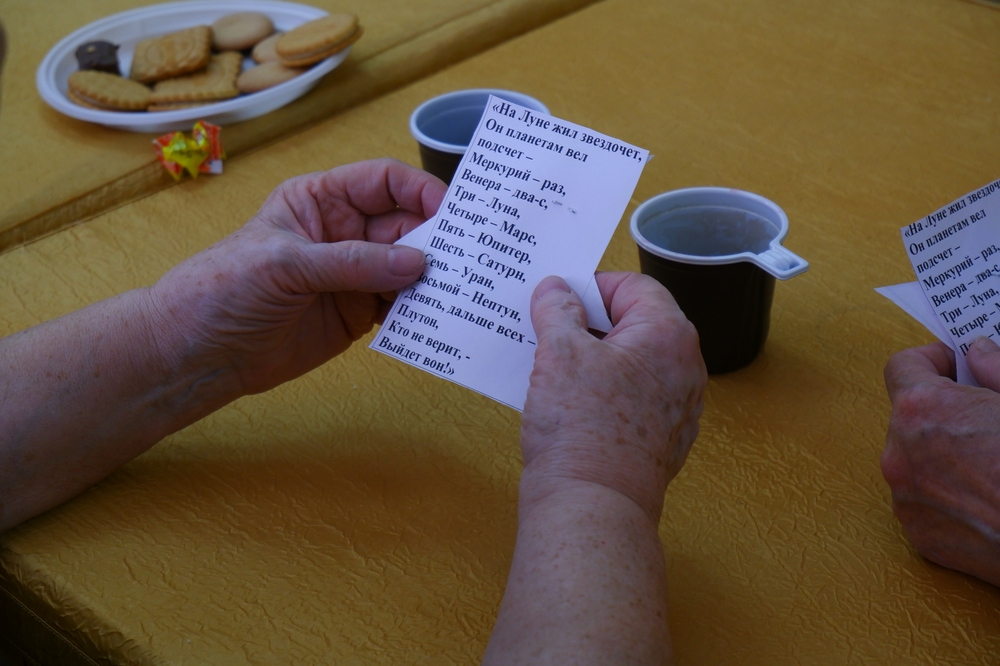 «На Луне жил звездочет,
Он планетам вел
подсчет –
Меркурий – раз,
Венера – два-с,
Три – Луна,
Четыре – Марс,
Пять – Юпитер,
Шесть – Сатурн,
Семь – Уран,
Восьмой – Нептун,
Девять, дальше всех –
Плутон,
Кто не верит, -
Выйдет вон!»
«На Луне жил звездоч
Он планетам вел
подсчет –
Меркурий – раз,
Венера – два-с
Три – Луна,
Четыре – М